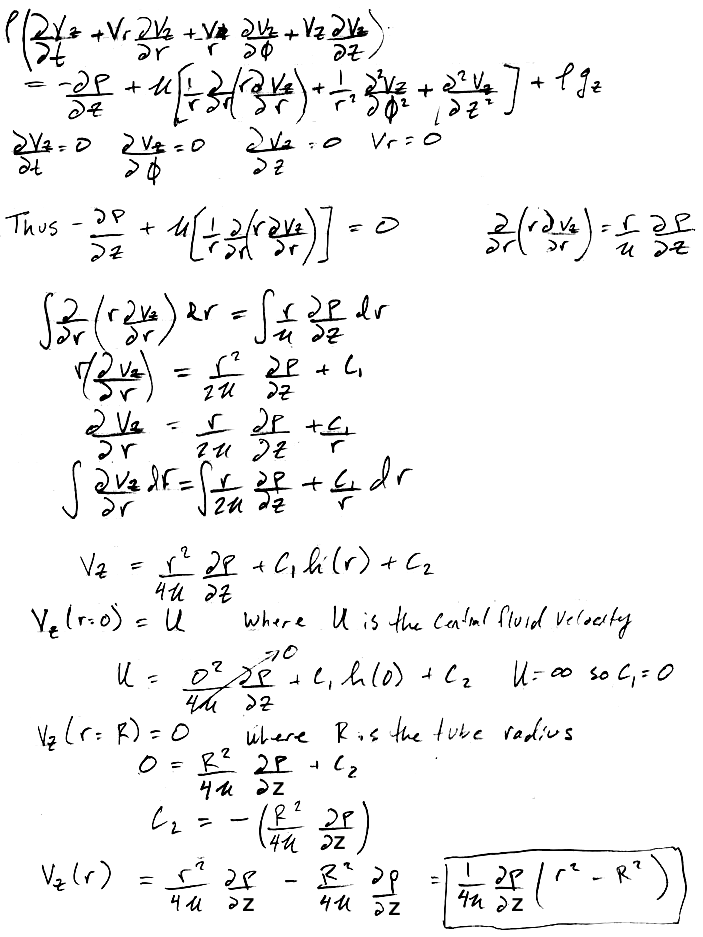 ρ(∂Vz/∂t + Vr ∂Vz/∂r + Vφ/r ∂Vz/∂φ + Vz ∂Vz/∂z)
= -∂P/∂z + μ[1/r ∂/∂r(r ∂Vz/∂r) + 1/r² ∂²Vz/∂φ² + ∂²Vz/∂z²] + ρgz
∂Vz/∂t = 0 ∂Vz/∂φ = 0 ∂Vz/∂z = 0 Vr = 0
Thus -∂P/∂z + μ[1/r ∂/∂r(r ∂Vz/∂r)] = 0 ∂/∂r(r ∂Vz/∂r) = r/μ ∂P/∂z
∫ ∂/∂r (r ∂Vz/∂r) dr = ∫ r/μ ∂P/∂z dr
r(∂Vz/∂r) = r²/2μ ∂P/∂z + C₁
∂Vz/∂r = r/2μ ∂P/∂z + C₁/r
∫ ∂Vz/∂r dr = ∫ r/2μ ∂P/∂z + C₁/r dr
Vz = r²/4μ ∂P/∂z + C₁ ln(r) + C₂
Vz(r=0) = U where U is the central fluid velocity
U = 0²/4μ ∂P/∂z →0 + C₁ ln(0) + C₂ U = ∞ so C₁ = 0
Vz(r=R) = 0 where R is the tube radius
0 = R²/4μ ∂P/∂z + C₂
C₂ = -(R²/4μ ∂P/∂z)
Vz(r) = r²/4μ ∂P/∂z - R²/4μ ∂P/∂z = 1/4μ ∂P/∂z (r² - R²)